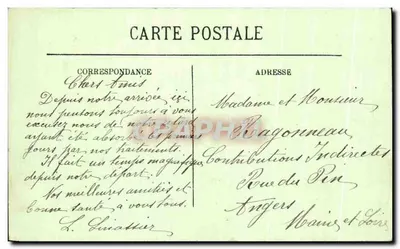 CARTE POSTALE
CORRESPONDANCE
ADRESSE
Chers Amis
Depuis notre arrivée ici
nous pensons toujours à vous
excusez nous de notre
ayant été absorbé
jours par nos
Il fait un temps magnifique
depuis notre départ.
Nos meilleures amitiés et
bonne santé à vous tous.
L. Linassier
Madame et Monsieur
Ragonneau
Contributions Indirectes
Rue du Pin
Angers
Maine et Loire